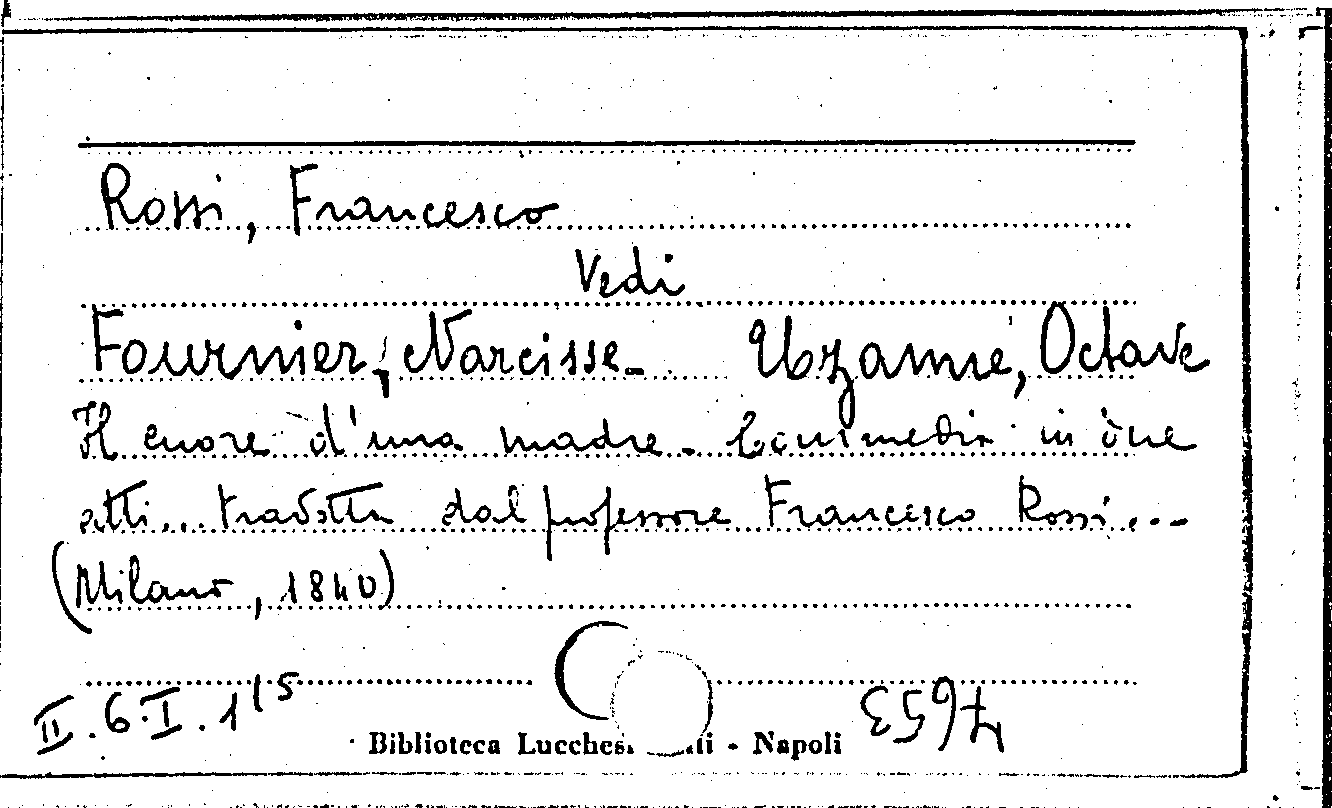 Rossi, Francesco
Vedi
Fournier, Narcisse - Uzanne, Octave
Il cuore d'una madre - Commedia in due
atti... tradotta dal professore Francesco Rossi...
(Milano, 1840)
II.6.I.1/5
Biblioteca Lucchesi - Napoli
7653